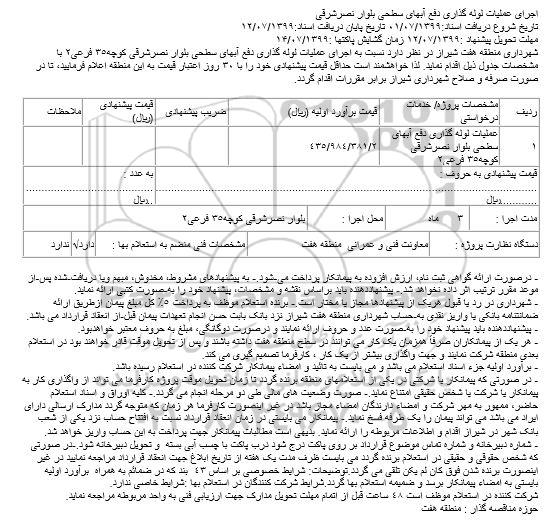 اجرای عملیات لوله گذاری دفع آبهای سطحی بلوار نصرشرقی
تاریخ شروع دریافت اسناد:۰۱/۰۷/۱۳۹۹ تاریخ پایان دریافت اسناد:۱۲/۰۷/۱۳۹۹
مهلت تحویل پیشنهاد :۱۲/۰۷/۱۳۹۹ زمان گشایش پاکتها :۱۴/۰۷/۱۳۹۹
شهرداری منطقه هفت شیراز در نظر دارد نسبت به اجرای عملیات لوله گذاری دفع آبهای سطحی بلوار نصرشرقی کوچه۳۵ فرعی۲ با
مشخصات جدول ذیل اقدام نماید. لذا خواهشمند است حداقل قیمت پیشنهادی خود را با ۳۰ روز اعتبار قیمت به این منطقه اعلام فرمایید، تا در
صورت صرفه و صلاح شهرداری شیراز برابر مقررات اقدام گردد.
ردیف مشخصات پروژه/ خدمات درخواستی قیمت برآورد اولیه (ریال) ضریب پیشنهادی قیمت پیشنهادی (ریال) ملاحظات
۱ عملیات لوله گذاری دفع آبهای سطحی بلوار نصرشرقی کوچه۳۵ فرعی۲ ۴۳۵/۹۸۴/۳۸۱/۲
قیمت پیشنهادی به حروف : به عدد :
..........ریال ..ریال
مدت اجرا : ۳ ماه محل اجرا : بلوار نصرشرقی کوچه۳۵ فرعی۲
دستگاه نظارت پروژه : معاونت فنی و عمرانی منطقه هفت مشخصات فنی منضم به استعلام بها : دارد/√ ندارد
ـ درصورت ارائه گواهی ثبت نام، ارزش افزوده به پیمانکار پرداخت می‌شود ـ به پیشنهادهای مشروط، مخدوش، مبهم ویا دریافت‌شده پس‌از
موعد مقرر ترتیب اثر داده نخواهد شد ـ پیشنهاددهنده باید براساس نقشه و مشخصات، پیشنهاد خود را به صورت کتبی ارائه نماید.
ـ شهرداری در رد یا قبول هریک از پیشنهادها مجاز یا مختار است ـ برنده استعلام موظف به پرداخت ۵٪ کل مبلغ پیمان ازطریق ارائه
ضمانتنامه بانکی یا واریز نقدی به‌حساب شهرداری منطقه هفت شیراز نزد بانک بابت حسن انجام تعهدات پیمان قبل‌از انعقاد قرارداد می باشد.
ـ پیشنهاددهنده باید پیشنهاد خود را به‌صورت عدد و حروف ارائه نمایند و درصورت دوگانگی، مبلغ به حروف معتبر خواهدبود.
ـ هر یک از پیمانکاران صرفاً همزمان یک کار می توانند در سطح منطقه هفت داشته باشند و پس از تحویل موقت قادر خواهند بود در استعلام
بعدی منطقه شرکت نمایند و جهت واگذاری بیشتر از یک کار ، کارفرما تصمیم گیری می کند.
ـ برآورد اولیه جزء اسناد استعلام می باشد و می بایست به تائید و امضاء پیمانکار شرکت کننده در استعلام رسیده باشد.
ـ در صورتی که پیمانکار یا شرکتی در یکی از استعلامهای منطقه برنده گردد تا زمان تحویل موقت پروژه کارفرما می تواند از واگذاری کار به
پیمانکار یا شرکت یا شخص حقیقی امتناع نماید ـ صورت وضعیت های مالی طی دو مرحله انجام می گردد ـ کلیه اوراق و اسناد استعلام
حاضر، ممهور به مهر شرکت و امضاء دارندگان امضاء مجاز باشد در غیر اینصورت کارفرما هر زمان که متوجه گردد مدارک ارسالی دارای
ایراد می باشد می تواند پیمان را یک طرفه فسخ نماید ـ پیمانکار می بایستی در زمان انعقاد قرارداد نسبت به افتتاح حساب نزد یکی از شعب
بانک شهر در شیراز اقدام و اطلاعات مربوطه را ارائه نماید .بدیهی است مطالبات پیمانکار جهت پرداخت به این حساب واریز خواهد شد.
ـ شماره دبیرخانه و شماره تماس موضوع قرارداد بر روی پاکت درج شود درب پاکت با چسب آبی بسته و تحویل دبیرخانه شود .بدر صورتی
که شخص حقوقی و حقیقی در استعلام برنده گردد می بایست ظرف مدت یک هفته از تاریخ ابلاغ جهت انعقاد قرارداد مراجعه نمایید در غیر
اینصورت برنده شدن فوق کان لم یکن تلقی می گردد.توضیحات: شرایط خصوصی بر اساس ۴۳ بند که در ضمائم به همراه برآورد اولیه
بایستی به امضاء پیمانکار برسد و ضمیمه استعلام بها گردد.شرایط شرکت کنندگان در استعلام بها :شرایط خاصی ندارد.
شرکت کننده در استعلام موظف است ۴۸ ساعت قبل از اتمام مهلت تحویل مدارک جهت ارزیابی فنی به واحد مربوطه مراجعه نماید.
حوزه مناقصه گذار : منطقه هفت